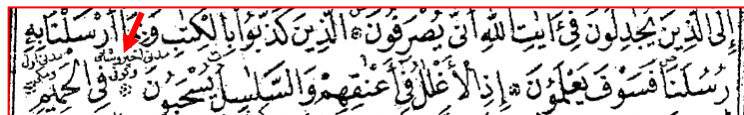 إِلَى الَّذِينَ يُجَٰدِلُونَ فِىٓ ءَايَٰتِ اللَّهِ أَنَّىٰ يُصْرَفُونَ ۞ الَّذِينَ كَذَّبُوا۟ بِالْكِتَٰبِ وَبِمَآ أَرْسَلْنَا بِهِۦ
رُسُلَنَا فَسَوْفَ يَعْلَمُونَ ۞ إِذِ الْأَغْلَٰلُ فِىٓ أَعْنَٰقِهِمْ وَالسَّلَٰسِلُ يُسْحَبُونَ ۞ فِى الْحَمِيمِ